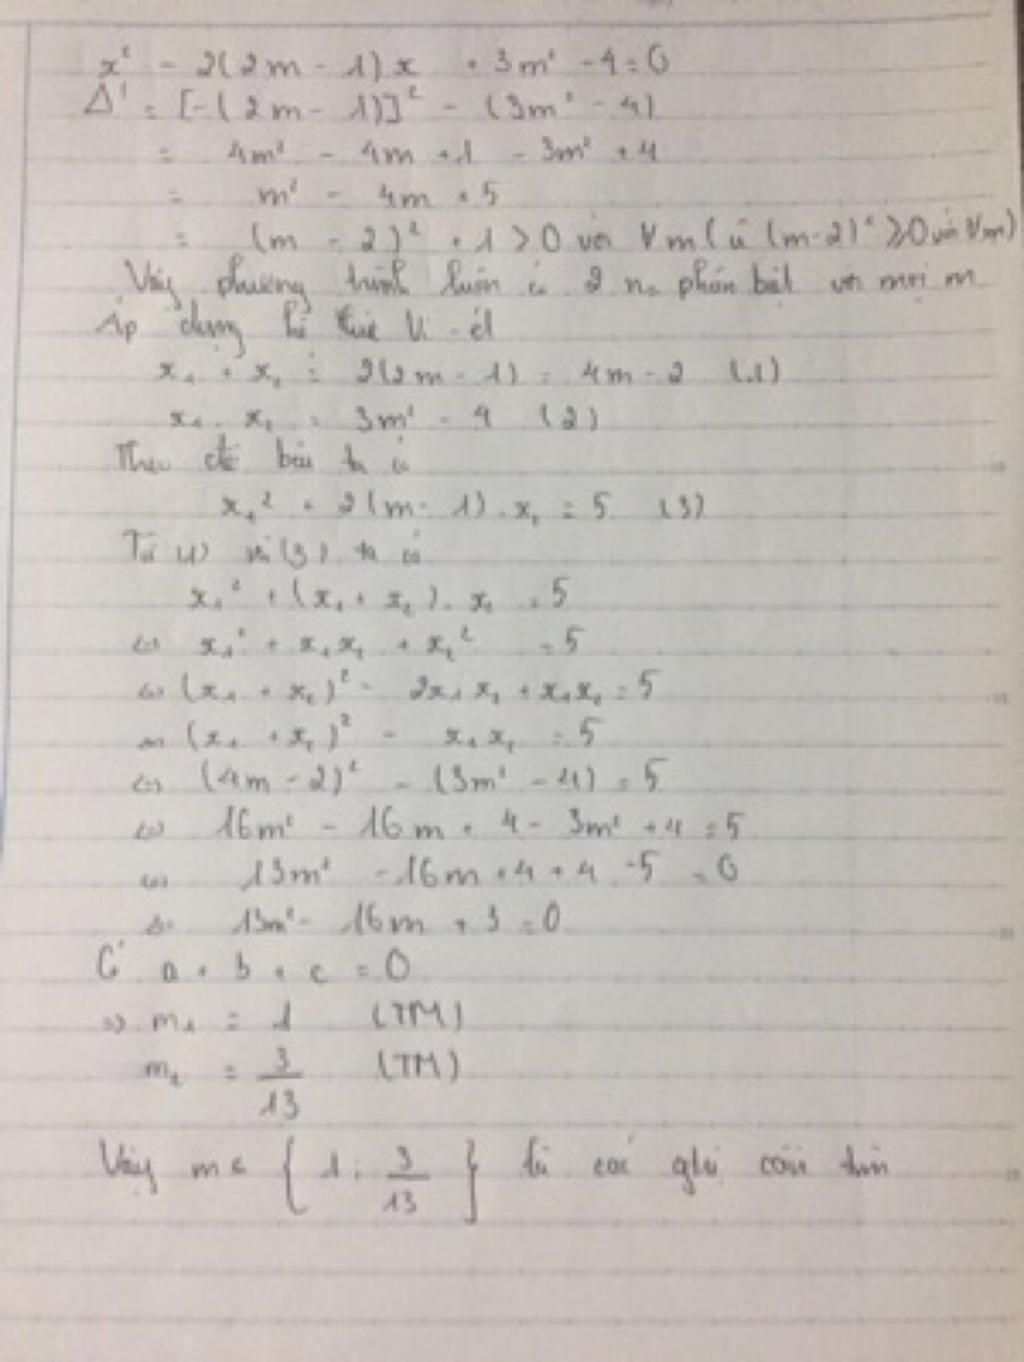 x² - 2(2m - 1)x + 3m² - 4 = 0
Δ' = [-(2m - 1)]² - (3m² - 4)
= 4m² - 4m + 1 - 3m² + 4
= m² - 4m + 5
= (m - 2)² + 1 > 0 với ∀m (vì (m-2)² ≥ 0 với ∀m)
Vậy phương trình luôn có 2 n₀ phân biệt với mọi m
Áp dụng hệ thức Vi-ét
x₁ + x₂ = 2(2m - 1) = 4m - 2 (1)
x₁ . x₂ = 3m² - 4 (2)
Theo đề bài ta có
x₁² + 2(m - 1) . x₂ = 5 (3)
Từ (1) và (3) ta có
x₁² + (x₁ + x₂) . x₂ = 5
⇔ x₁² + x₁x₂ + x₂² = 5
⇔ (x₁ + x₂)² - 2x₁x₂ + x₁x₂ = 5
⇔ (x₁ + x₂)² - x₁x₂ = 5
⇔ (4m - 2)² - (3m² - 4) = 5
⇔ 16m² - 16m + 4 - 3m² + 4 = 5
⇔ 13m² - 16m + 4 + 4 - 5 = 0
⇔ 13m² - 16m + 3 = 0
Có a + b + c = 0
⇒ m₁ = 1 (TM)
m₂ = 3/13 (TM)
Vậy m ∈ { 1 ; 3/13 } là các gtri cần tìm